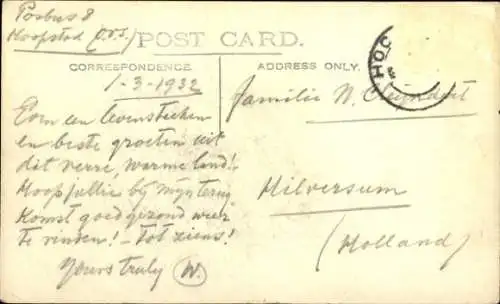 Posbus 8
Hoopstad (O.V.S.)
POST CARD.
CORRESPONDENCE
ADDRESS ONLY.
1-3-1932
Eom een levensteeken
en beste groeten uit
dit verre, warme land!
Hoop jullie bij mijn terug
komst goed gezond weer
te vinden! - Tot ziens!
Yours truly W.
Familie N.
Hilversum
(Holland)
HOO